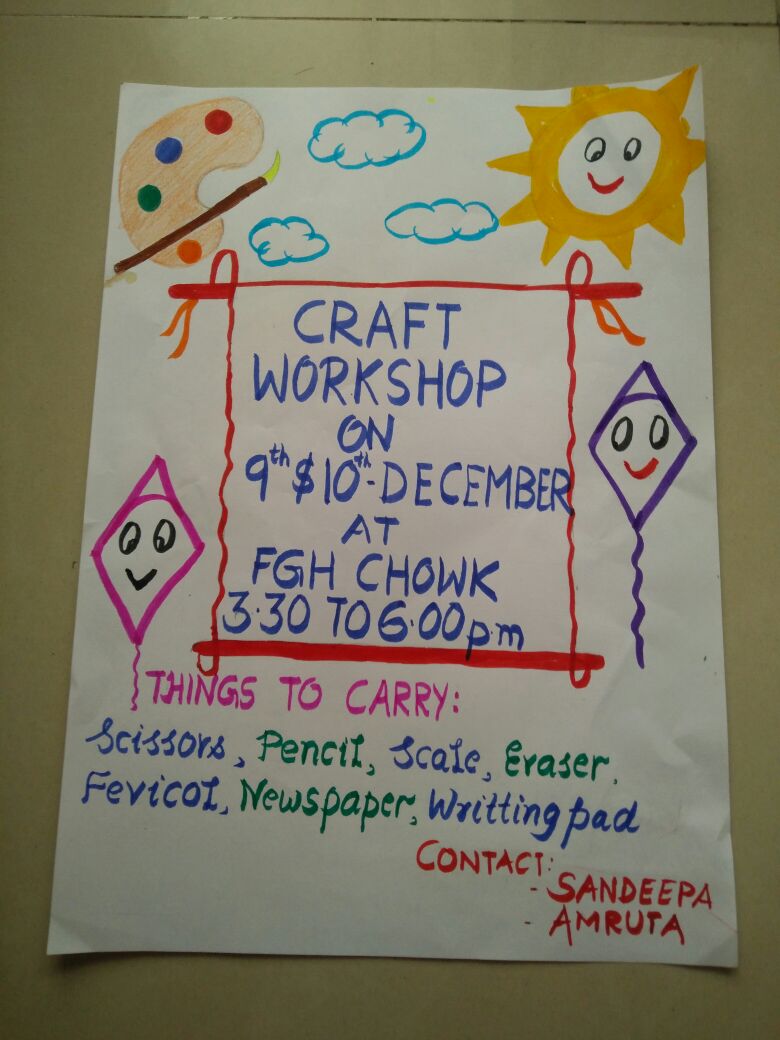 CRAFT
WORKSHOP
ON
9th $ 10th-DECEMBER
AT
FGH CHOWK
3.30 TO 6.00 p.m
THINGS TO CARRY:
Scissors, Pencil, Scale, Eraser,
Fevicol, Newspaper, Writting pad
CONTACT:
- SANDEEPA
- AMRUTA